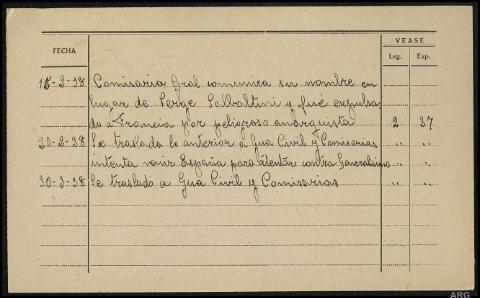 VEASE
FECHA
Leg. Exp.
15-2-38 Comisaria Gral comunica su nombre en
lugar de Jorge Salbaltini y fué expulsa
do a Francia por peligroso anarquista 2 27
20-2-38 Se traslada lo anterior a Gua Civil y Comisarias " "
intenta venir España para atentar contra Generalisimo " "
30-3-38 Se traslado a Gua Civil y Comisarias " "
ARG